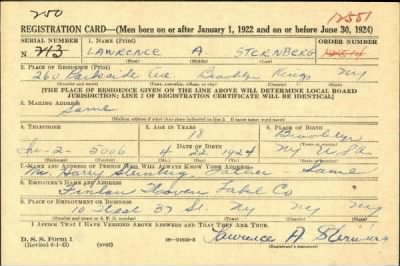 250
12551
REGISTRATION CARD—(Men born on or after January 1, 1922 and on or before June 30, 1924)
SERIAL NUMBER 1. NAME (Print) ORDER NUMBER
N 213 LAWRENCE A. STERNBERG
(First) (Middle) (Last)
2. PLACE OF RESIDENCE (Print)
260 Parkside Ave Brooklyn Kings NY
(Number and street) (Town, township, village, or city) (County) (State)
[THE PLACE OF RESIDENCE GIVEN ON THE LINE ABOVE WILL DETERMINE LOCAL BOARD
JURISDICTION; LINE 2 OF REGISTRATION CERTIFICATE WILL BE IDENTICAL]
3. MAILING ADDRESS
Same
[Mailing address if other than place indicated on line 2. If same, insert word same]
4. TELEPHONE 5. AGE IN YEARS 6. PLACE OF BIRTH
18 Brooklyn
DATE OF BIRTH
2-5006 4 22 1924 NY U.S.A.
(Exchange) (Number) (Mo.) (Day) (Yr.) (State or country)
7. NAME AND ADDRESS OF PERSON WHO WILL ALWAYS KNOW YOUR ADDRESS
Mr. Harry Sternberg, Father Same
8. EMPLOYER'S NAME AND ADDRESS
Woven Label Co
9. PLACE OF EMPLOYMENT OR BUSINESS
10 West 37 St. NY NY NY
(Number and street or R. F. D. number) (Town) (County) (State)
I AFFIRM THAT I HAVE VERIFIED ABOVE ANSWERS AND THAT THEY ARE TRUE.
D. S. S. Form 1
(Revised 6-1-42) (over) Lawrence A Sternberg
(Registrant's signature)